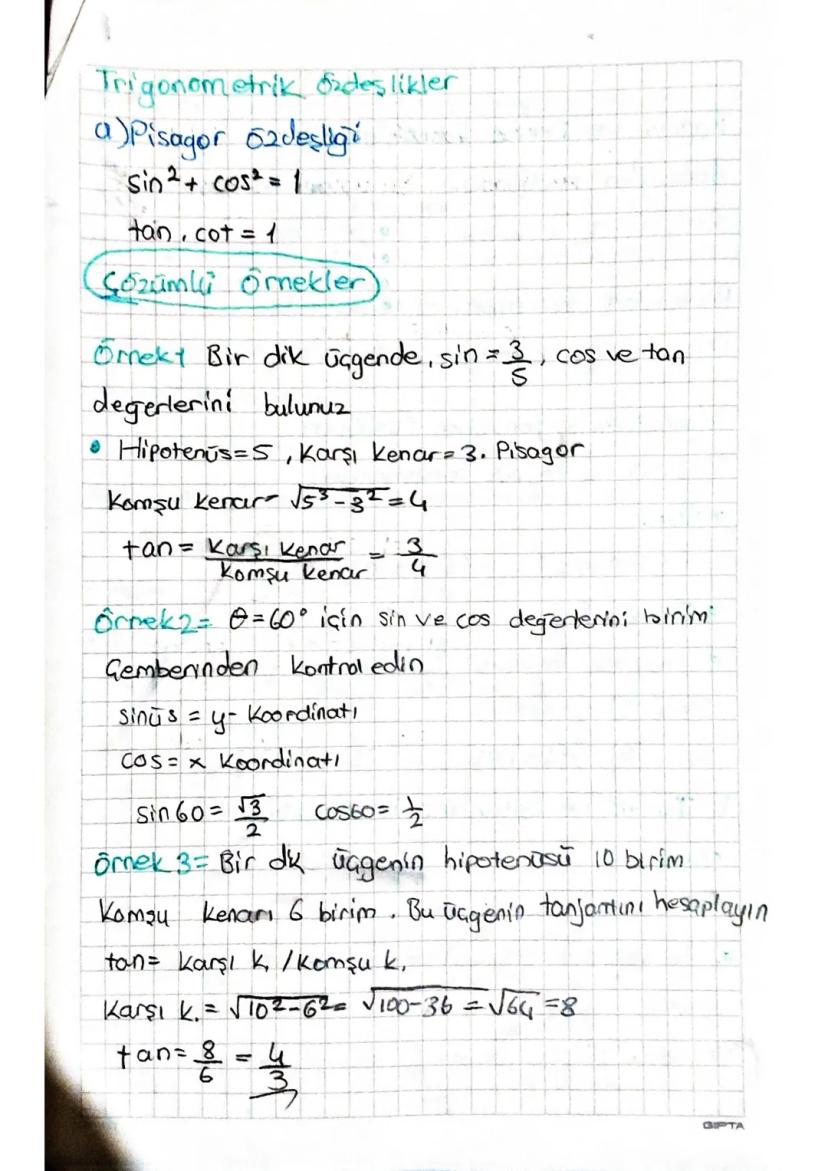 Trigonometrik özdeşlikler
a) Pisagor özdeşliği
sin² + cos² = 1
tan . cot = 1
Çözümlü Örnekler
Örnek 1 Bir dik üçgende, sin = 3/5, cos ve tan
değerlerini bulunuz
• Hipotenüs = 5, Karşı kenar = 3. Pisagor
Komşu kenar = √5³ - 3² = 4
tan = Karşı kenar / Komşu kenar = 3/4
Örnek 2 = θ = 60° için sin ve cos değerlerini birim
Çemberinden kontrol edin
sinüs = y - Koordinatı
cos = x Koordinatı
sin 60 = √3/2 cos60 = 1/2
Örnek 3 = Bir dik üçgenin hipotenüsü 10 birim
Komşu kenarı 6 birim. Bu üçgenin tanjantını hesaplayın
tan = Karşı k. / Komşu k.
Karşı k. = √10² - 6² = √100 - 36 = √64 = 8
tan = 8/6 = 4/3
GIPTA